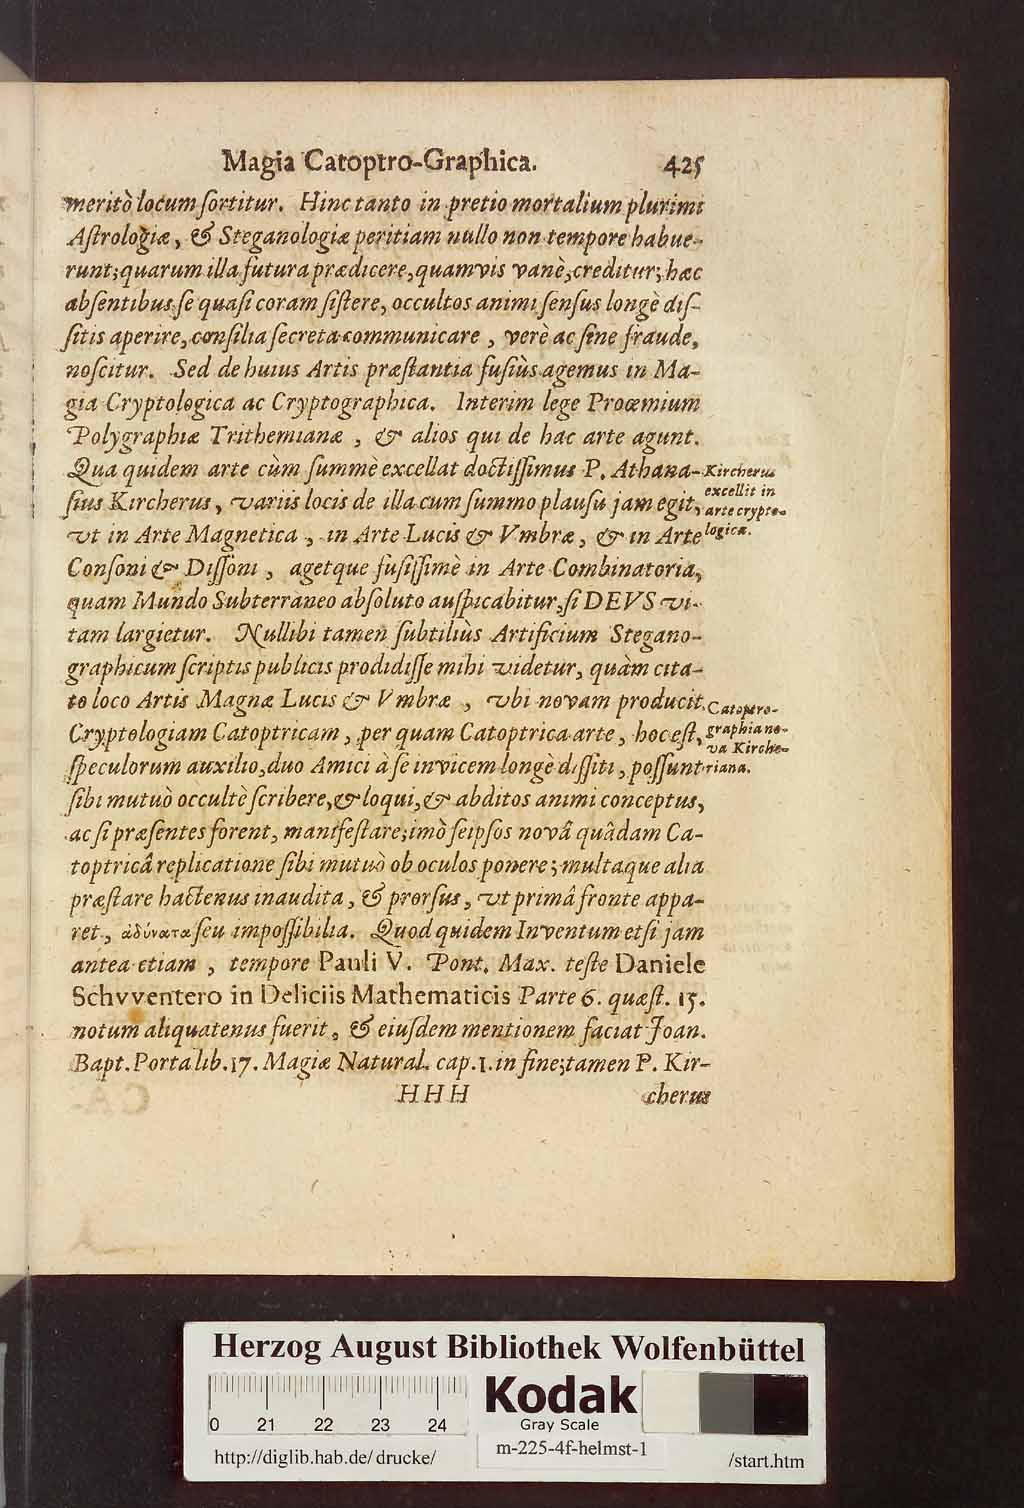 Magia Catoptro-Graphica. 425
meritò locum ſortitur. Hinc tanto in pretio mortalium plurimi
Aſtrologiæ, & Steganologiæ peritiam nullo non tempore habue-
runt; quarum illa futura prædicere, quamvis vanè, creditur; hæc
abſentibus ſe quaſi coram ſiſtere, occultos animi ſenſus longè diſ-
ſitis aperire, conſilia ſecreta communicare, verè ac ſine fraude,
noſcitur. Sed de huius Artis præſtantia fuſiùs agemus in Ma-
gia Cryptologica ac Cryptographica. Interim lege Proœmium
Polygraphiæ Trithemianæ, & alios qui de hac arte agunt.
Qua quidem arte cùm ſummè excellat doctiſſimus P. Athana-
ſius Kircherus, variis locis de illa cum ſummo plauſu jam egit,
vt in Arte Magnetica, in Arte Lucis & Vmbræ, & in Arte
Conſoni & Diſſoni, agetque fuſiſſimè in Arte Combinatoria,
quam Mundo Subterraneo abſoluto auſpicabitur, ſi DEVS vi-
tam largietur. Nullibi tamen ſubtiliùs Artificium Stegano-
graphicum ſcriptis publicis prodidiſſe mihi videtur, quàm cita-
to loco Artis Magnæ Lucis & Vmbræ, vbi novam producit
Cryptologiam Catoptricam, per quam Catoptrica arte, hoc eſt,
ſpeculorum auxilio, duo Amici à ſe invicem longè diſſiti, poſſunt
ſibi mutuò occultè ſcribere, & loqui, & abditos animi conceptus,
ac ſi præſentes forent, manifeſtare; imò ſeipſos novâ quâdam Ca-
toptricâ replicatione ſibi mutuò ob oculos ponere; multaque alia
præſtare hactenus inaudita, & prorſus, vt primâ fronte appa-
ret, ἀδύνατα ſeu impoſſibilia. Quod quidem Inventum etſi jam
antea etiam, tempore Pauli V. Pont. Max. teſte Daniele
Schvventero in Deliciis Mathematicis Parte 6. quæſt. 15.
notum aliquatenus fuerit, & eiuſdem mentionem faciat Joan.
Bapt. Porta lib. 17. Magiæ Natural. cap. 1. in fine; tamen P. Kir-
HHH cherus
Kircherus
excellit in
arte crypto-
logica.
Catoptro-
graphia no-
va Kirche-
riana.
Herzog August Bibliothek Wolfenbüttel
0 21 22 23 24
Kodak
Gray Scale
http://diglib.hab.de/drucke/ m-225-4f-helmst-1 /start.htm